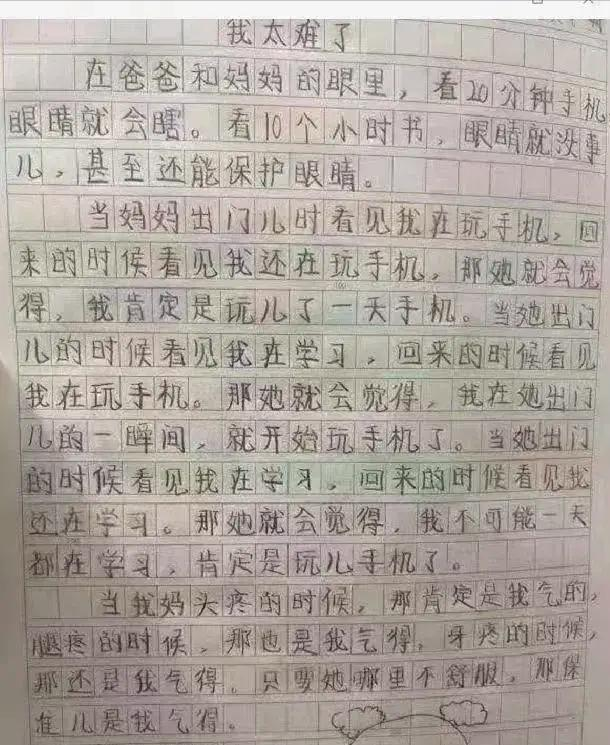 我太难了
在爸爸和妈妈的眼里，看20分钟手机
眼睛就会瞎。看10个小时书，眼睛就没事
儿，甚至还能保护眼睛。
当妈妈出门儿时看见我在玩手机，回
来的时候看见我还在玩手机，那她就会觉
得，我肯定是玩儿了一天手机。当她出门
儿的时候看见我在学习，回来的时候看见
我在玩手机。那她就会觉得，我在她出门
儿的一瞬间，就开始玩手机了。当她出门
的时候看见我在学习，回来的时候看见我
还在学习。那她就会觉得，我不可能一天
都在学习，肯定是玩儿手机了。
当我妈头疼的时候，那肯定是我气的，
腿疼的时候，那也是我气得，牙疼的时候，
那还是我气得。只要她哪里不舒服，那保
准儿是我气得。